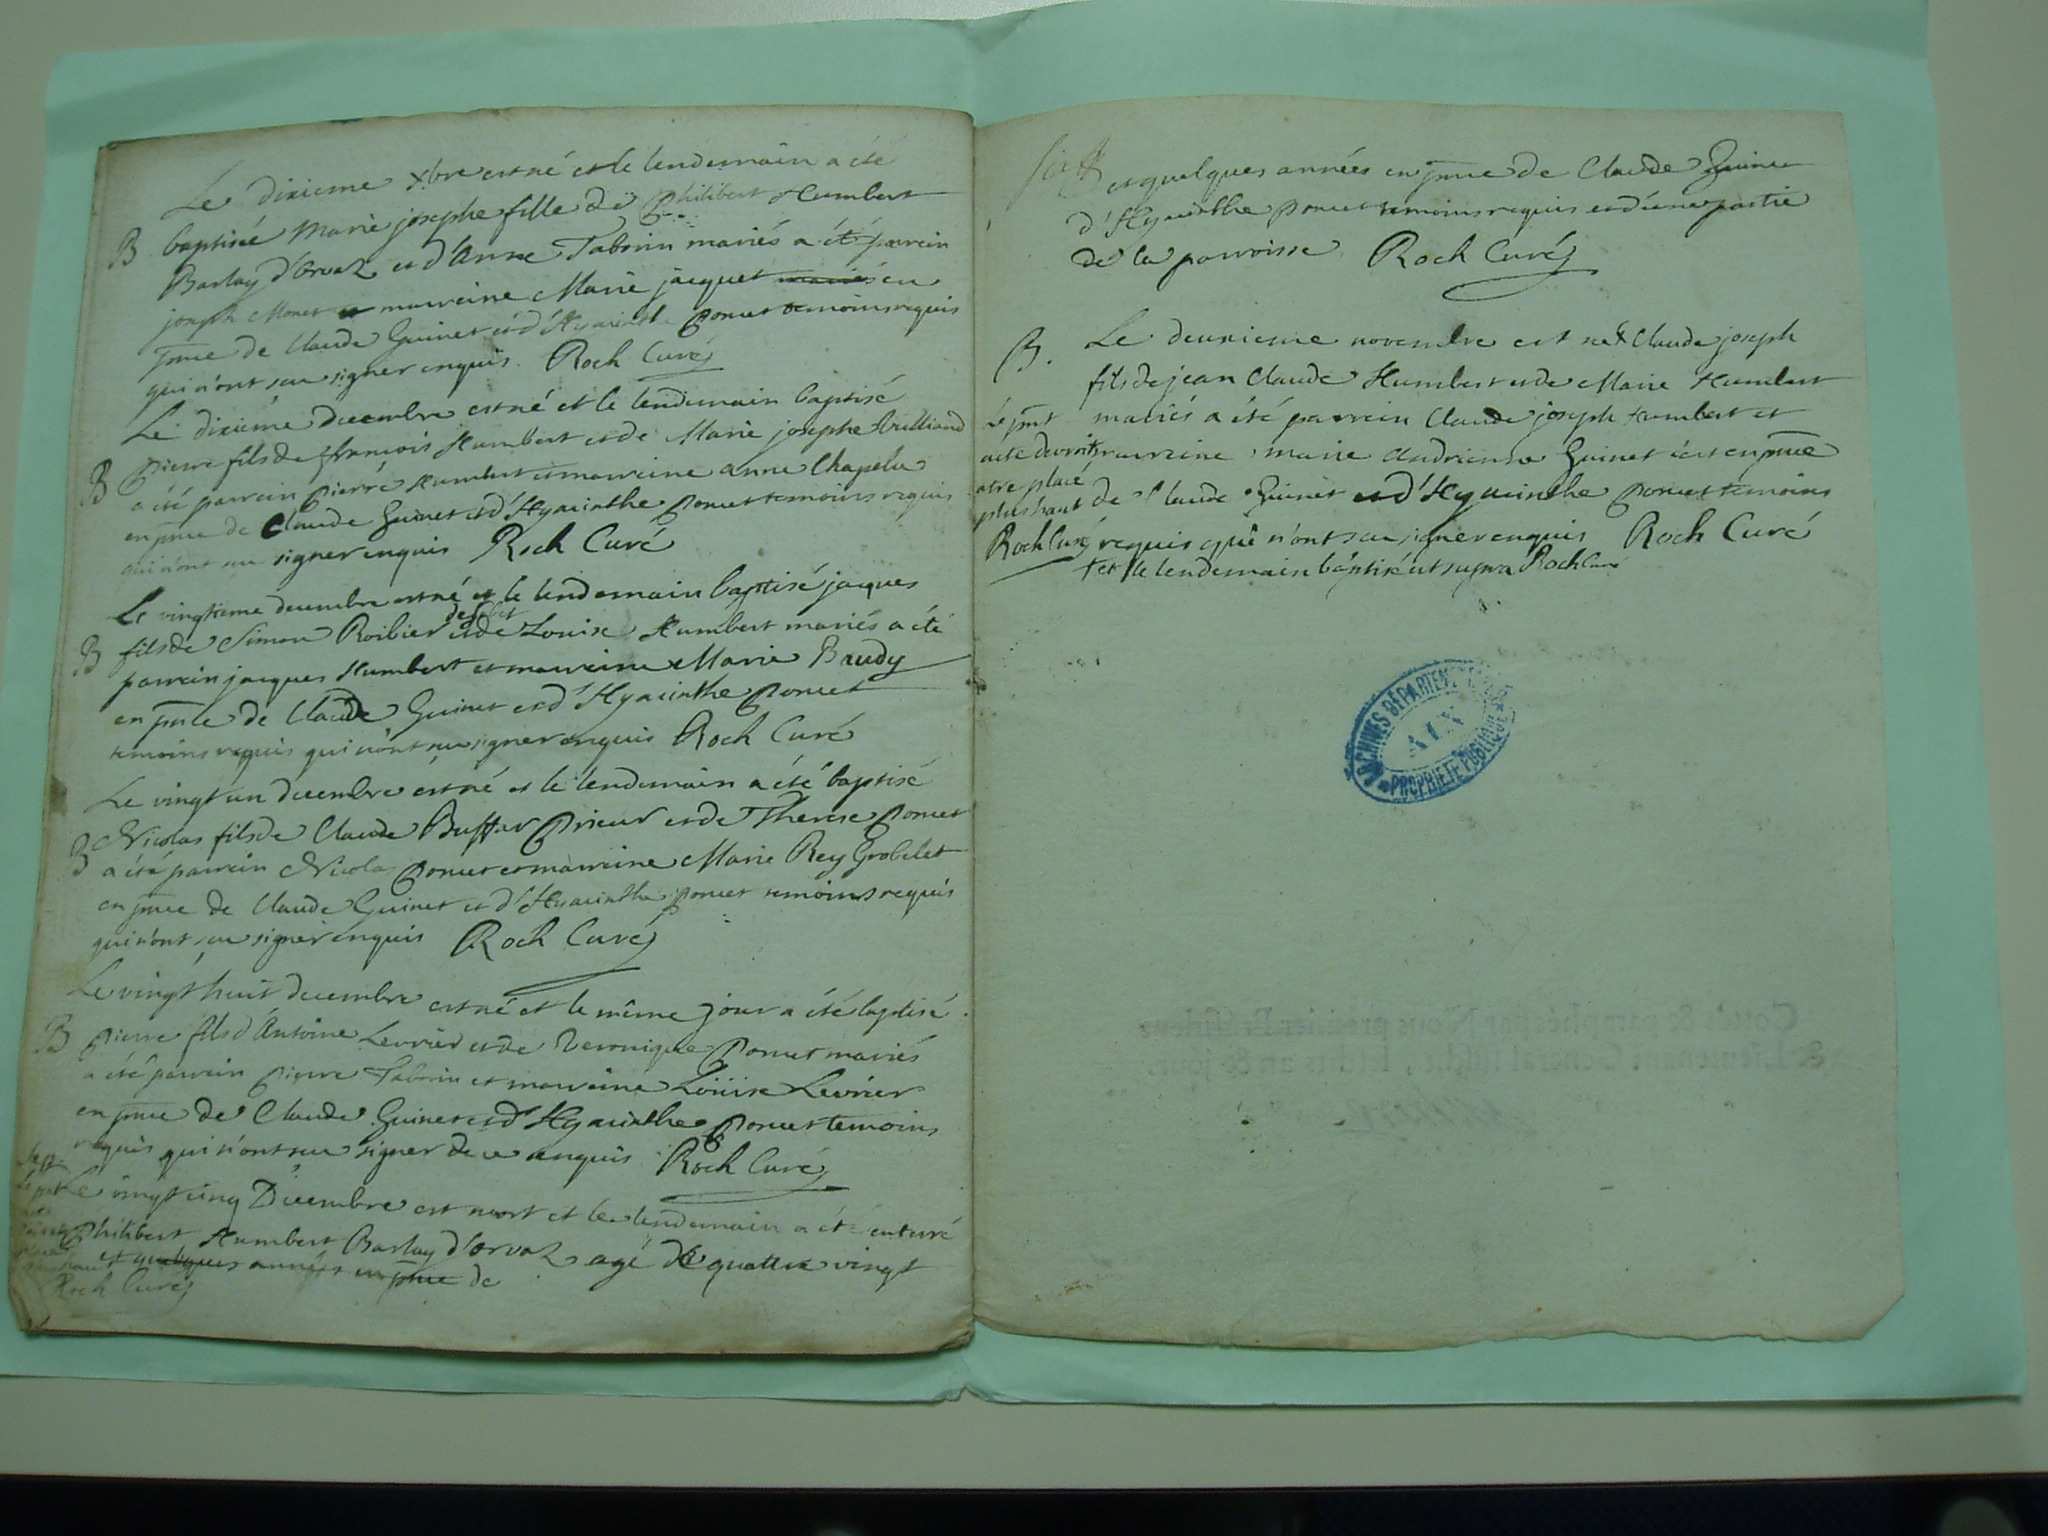 Le dixieme xbre est né et le lendemain a été
B baptisée Marie josephe fille de Philibert Humbert
Barlay d'orvaz et d'Anne Taborin mariés a été parrein
joseph Monet et marreine Marie jacquet mariés en
pnce de Claude Guinet et d'Hyacinthe Poncet temoins requis
qui n'ont scu signer enquis. Roch Curé
Le dixieme decembre est né et le lendemain baptisé
B Pierre fils de François Humbert et de Marie josephe
a été parrein Pierre Humbert et marreine anne Chapelu
en pnce de Claude Guinet et d'Hyacinthe Poncet temoins requis
qui n'ont scu signer enquis Roch Curé
Le vingtieme decembre est né et le lendemain baptisé jacques
B fils de Simon Roibier et de Louise Humbert mariés a été
parrein jacques Humbert et marreine Marie Baudy
en pnce de Claude Guinet et d'Hyacinthe Poncet
temoins requis qui n'ont scu signer enquis Roch Curé
Le vingt un decembre est né et le lendemain a été baptisé
B Nicolas fils de Claude Buffar Prieur et de Therese Poncet
a été parrein Nicola Poncet et marreine Marie Rey Grobelet
en pnce de Claude Guinet et d'Hyacinthe Poncet temoins requis
qui n'ont scu signer enquis Roch Curé
Le vingt huit decembre est né et le même jour a été baptisé
B Pierre fils d'Antoine Levrier et de Veronique Poncet mariés
a été parrein Pierre Taborin et marreine Loüise Levrier
en pnce de Claude Guinet et d'Hyacinthe Poncet temoins
requis qui n'ont scu signer de ce enquis Roch Curé
Sep.
Le vingt cinq Decembre est mort et le lendemain a été enterré
Philibert Humbert Barlay d'orvaz agé de quattre vingt
et quelques années en pnce de
Roch Curé
et quelques années en pnce de Claude Guinet
d'Hyacinthe Poncet temoins requis et d'une partie
de la parroisse Roch Curé
B. Le deuxieme novembre est né Claude joseph
fils de jean Claude Humbert et de Marie Humbert
mariés a été parrein Claude joseph Humbert et
marreine marie andrienne Guinet et en pnce
de Claude Guinet et d'Hyacinthe Poncet temoins
requis qui n'ont scu signer enquis Roch Curé
et le lendemain baptisé ut supra Roch Curé
Le pnt
acte devroit
etre placé
plus haut
Roch Curé
ARCHIVES DÉPARTEMENTALES
AIN
PROPRIÉTÉ PUBLIQUE